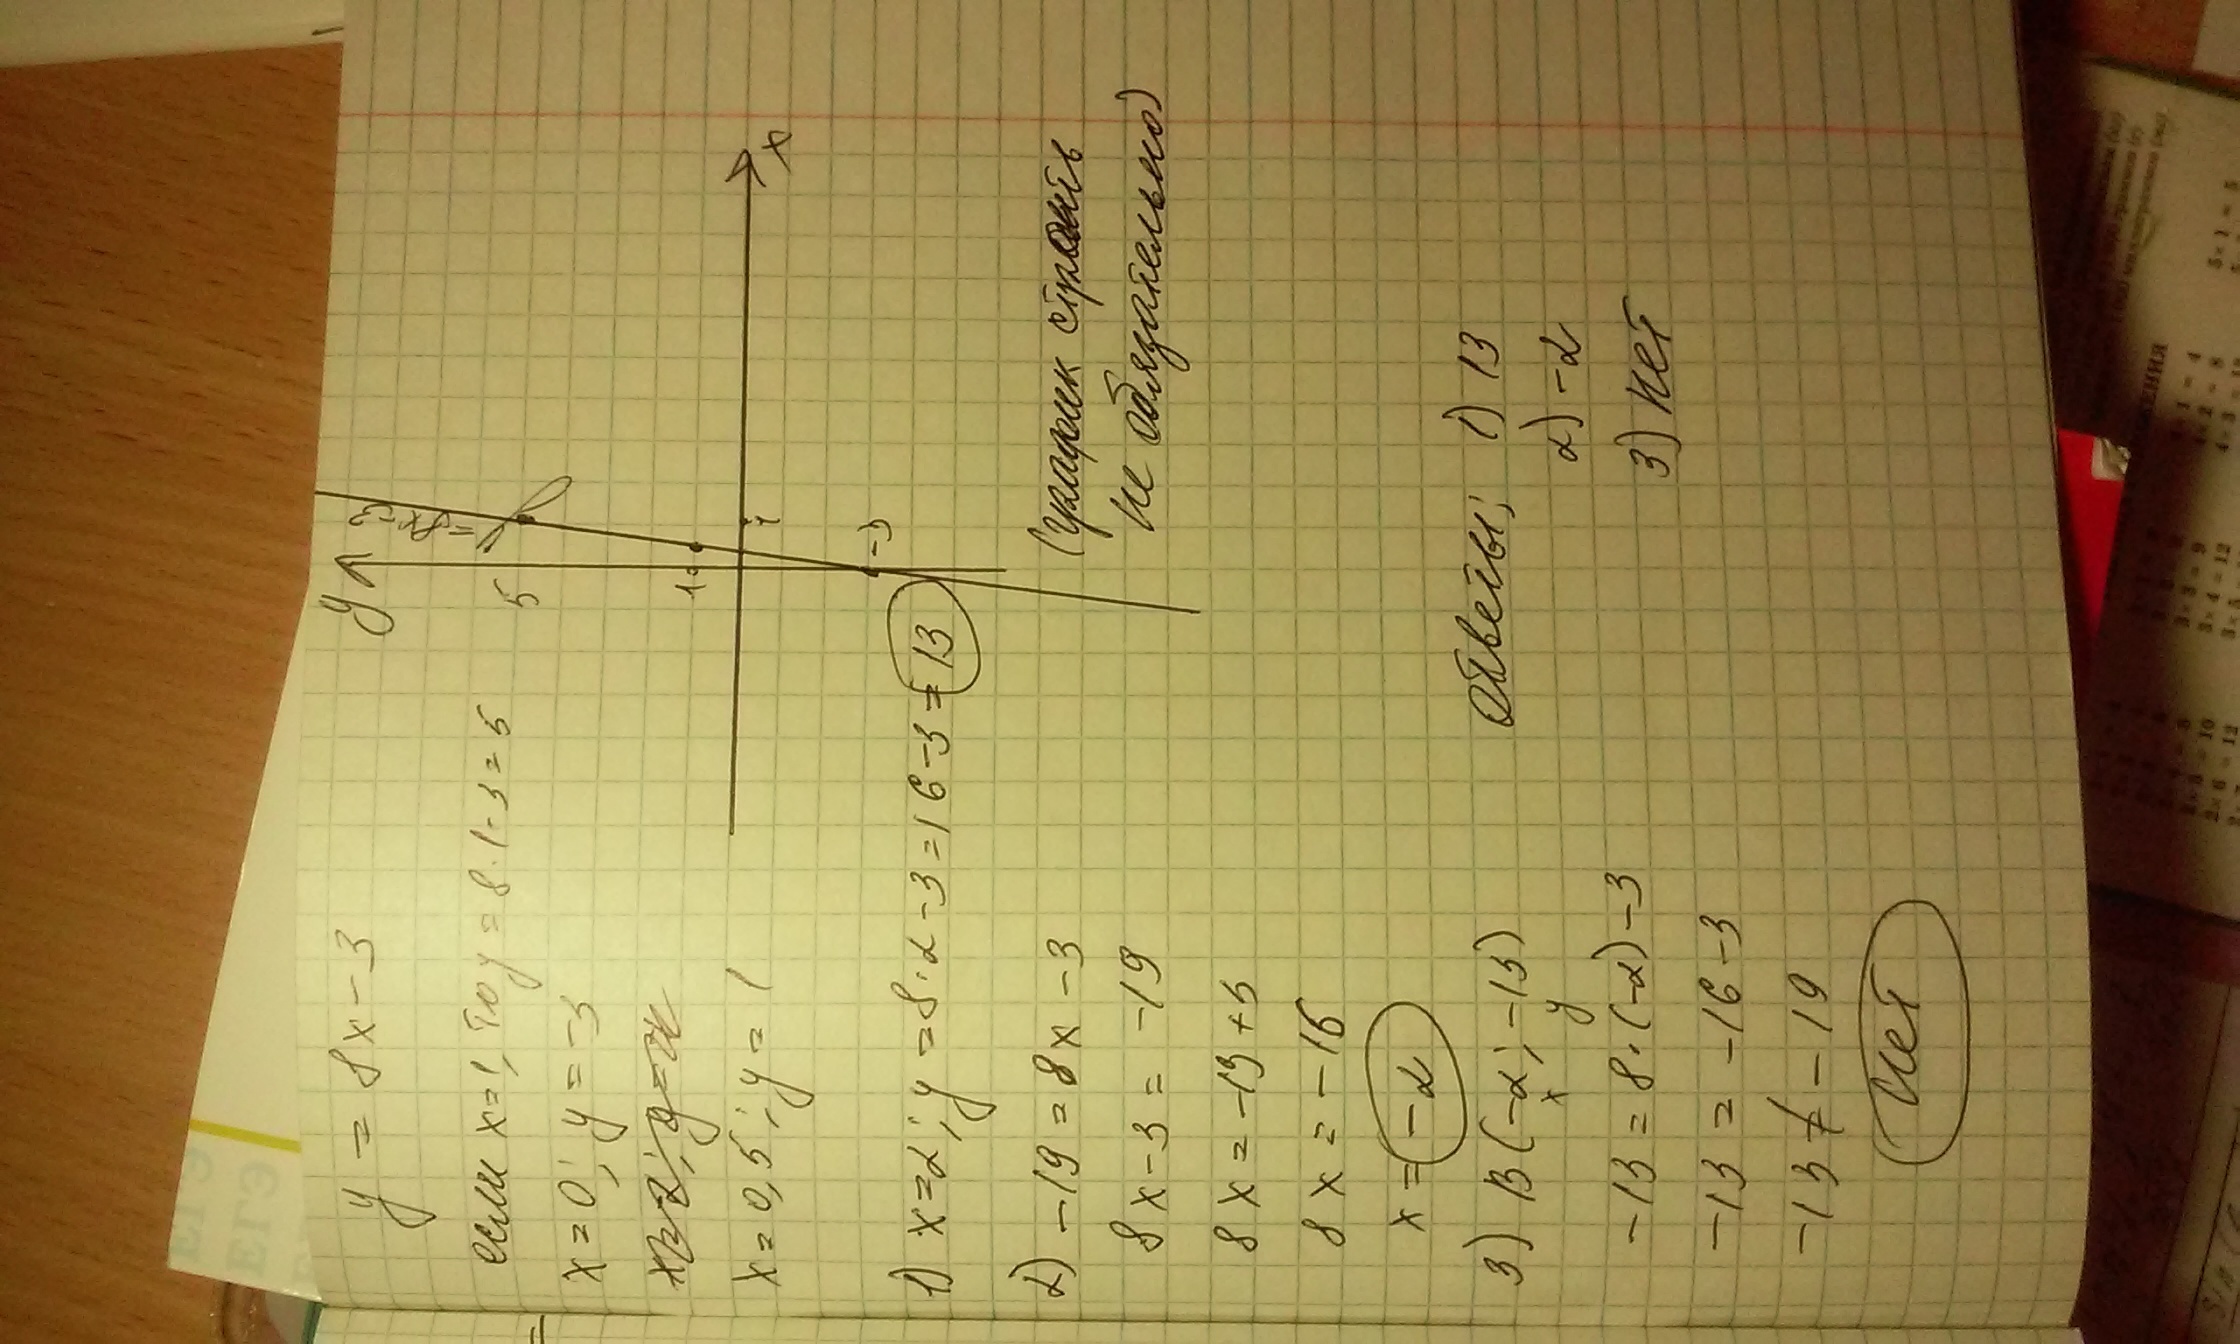 y = 8x - 3
если x=1, то y = 8·1-3=5
x=0; y=-3
x=0,5; y=1
y
5
1
x
1
-3
y=8x-3
1) x=2; y=8·2-3=16-3=13
2) -19=8x-3
8x-3=-19
8x=-19+3
8x=-16
x=-2
(график строить
не обязательно)
3) B(-2; -13)
x y
-13=8·(-2)-3
-13=-16-3
-13≠-19
нет
Ответы: 1) 13
2) -2
3) нет